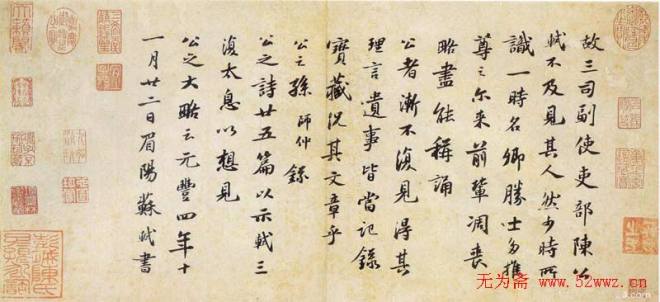 故三司副使吏部陳公
軾不及見其人然少時所
識一時名卿勝士多推
尊之尔来前輩凋喪
略盡能稱誦
公者漸不復見得其
理言遺事皆當記錄
寶藏況其文章乎
公之孫師仲錄
公之詩廿五篇以示軾三
復太息以想見
公之大略云元豐四年十
一月廿二日眉陽蘇軾書
无为斋 www.52wwz.cn